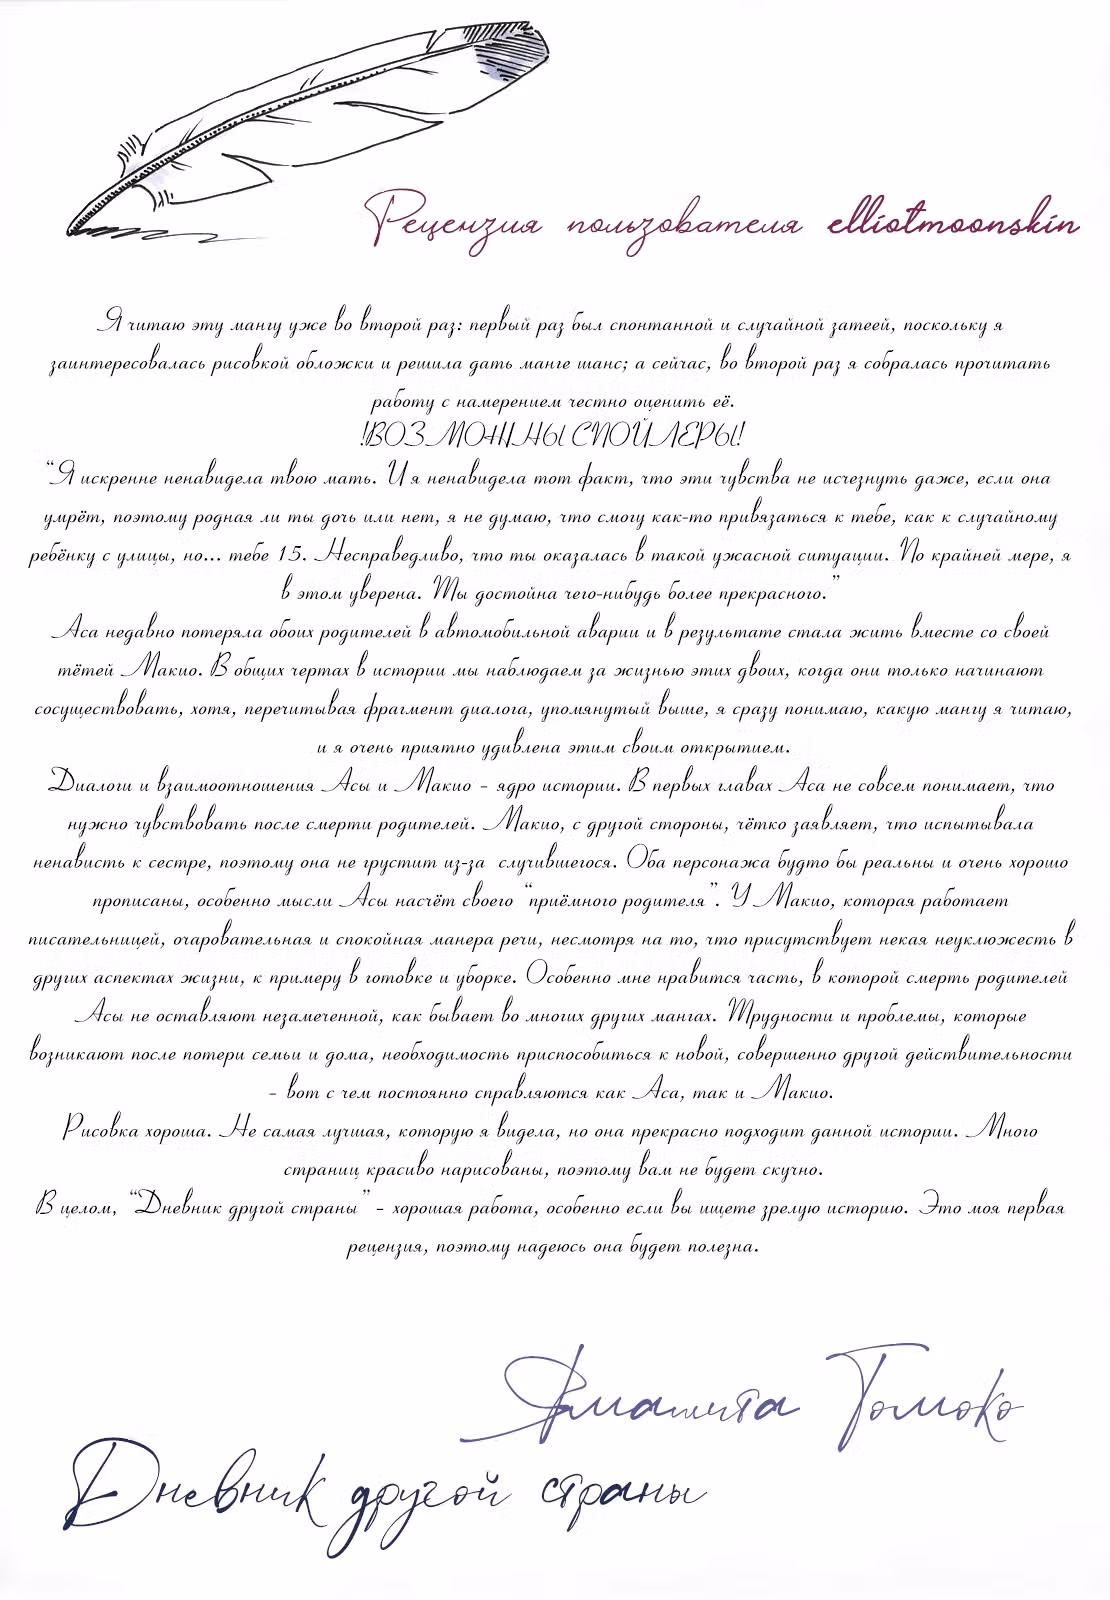 Рецензия пользователя elliotmoonskin
Я читаю эту мангу уже во второй раз: первый раз был спонтанной и случайной затеей, поскольку я
заинтересовалась рисовкой обложки и решила дать манге шанс; а сейчас, во второй раз я собралась прочитать
работу с намерением честно оценить её.
!ВОЗМОЖНЫ СПОЙЛЕРЫ!
“Я искренне ненавидела твою мать. И я ненавидела тот факт, что эти чувства не исчезнуть даже, если она
умрёт, поэтому родная ли ты дочь или нет, я не думаю, что смогу как-то привязаться к тебе, как к случайному
ребёнку с улицы, но... тебе 15. Несправедливо, что ты оказалась в такой ужасной ситуации. По крайней мере, я
в этом уверена. Ты достойна чего-нибудь более прекрасного.”
Аса недавно потеряла обоих родителей в автомобильной аварии и в результате стала жить вместе со своей
тётей Макио. В общих чертах в истории мы наблюдаем за жизнью этих двоих, когда они только начинают
сосуществовать, хотя, перечитывая фрагмент диалога, упомянутый выше, я сразу понимаю, какую мангу я читаю,
и я очень приятно удивлена этим своим открытием.
Диалоги и взаимоотношения Асы и Макио - ядро истории. В первых главах Аса не совсем понимает, что
нужно чувствовать после смерти родителей. Макио, с другой стороны, чётко заявляет, что испытывала
ненависть к сестре, поэтому она не грустит из-за случившегося. Оба персонажа будто бы реальны и очень хорошо
прописаны, особенно мысли Асы насчёт своего “приёмного родителя”. У Макио, которая работает
писательницей, очаровательная и спокойная манера речи, несмотря на то, что присутствует некая неуклюжесть в
других аспектах жизни, к примеру в готовке и уборке. Особенно мне нравится часть, в которой смерть родителей
Асы не оставляют незамеченной, как бывает во многих других мангах. Трудности и проблемы, которые
возникают после потери семьи и дома, необходимость приспособиться к новой, совершенно другой действительности
- вот с чем постоянно справляются как Аса, так и Макио.
Рисовка хороша. Не самая лучшая, которую я видела, но она прекрасно подходит данной истории. Много
страниц красиво нарисованы, поэтому вам не будет скучно.
В целом, “Дневник другой страны” - хорошая работа, особенно если вы ищете зрелую историю. Это моя первая
рецензия, поэтому надеюсь она будет полезна.
Ямашита Томоко
Дневник другой страны